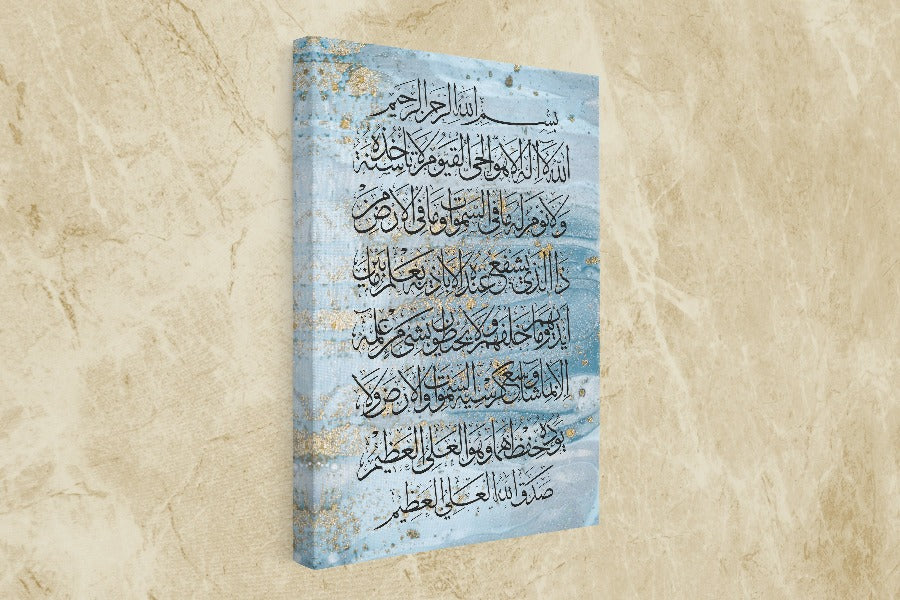 بسم الله الرحمن الرحيم
الله لا إله إلا هو الحي القيوم لا تأخذه سنة
ولا نوم له ما في السموات وما في الأرض من
ذا الذي يشفع عنده إلا بإذنه يعلم ما بين
أيديهم وما خلفهم ولا يحيطون بشيء من علمه
إلا بما شاء وسع كرسيه السموات والأرض ولا
يؤده حفظهما وهو العلي العظيم
صدق الله العلي العظيم